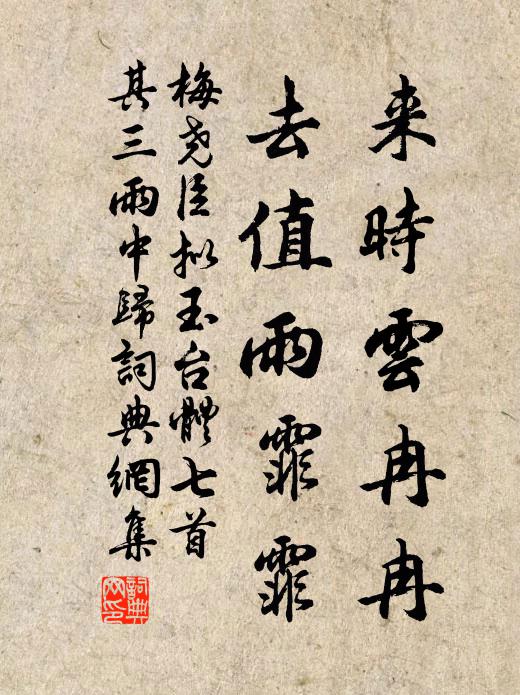 来時雲冉冉
去值雨霏霏
梅尧臣拟玉台體七首
其三雨中歸詞典網集
詞典
网印